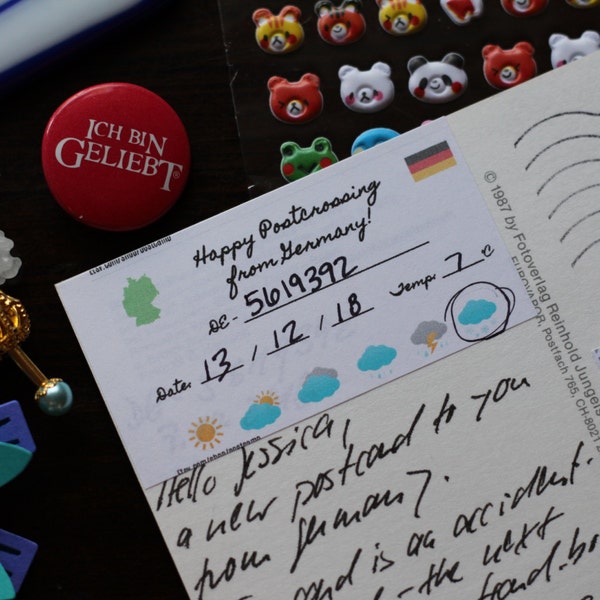 ICH BIN
GELIEBT®
Happy Postcrossing
from Germany!
DE- 5619392
Date: 13 / 12 / 18
Temp: 7 °C
© 1987 by Fotoverlag Reinhold Jungels
EUROVAPOR, Postfach 765, CH-8021 Z
Hello Jessica,
a new postcard to you
from Germany.
is an accident.
the next